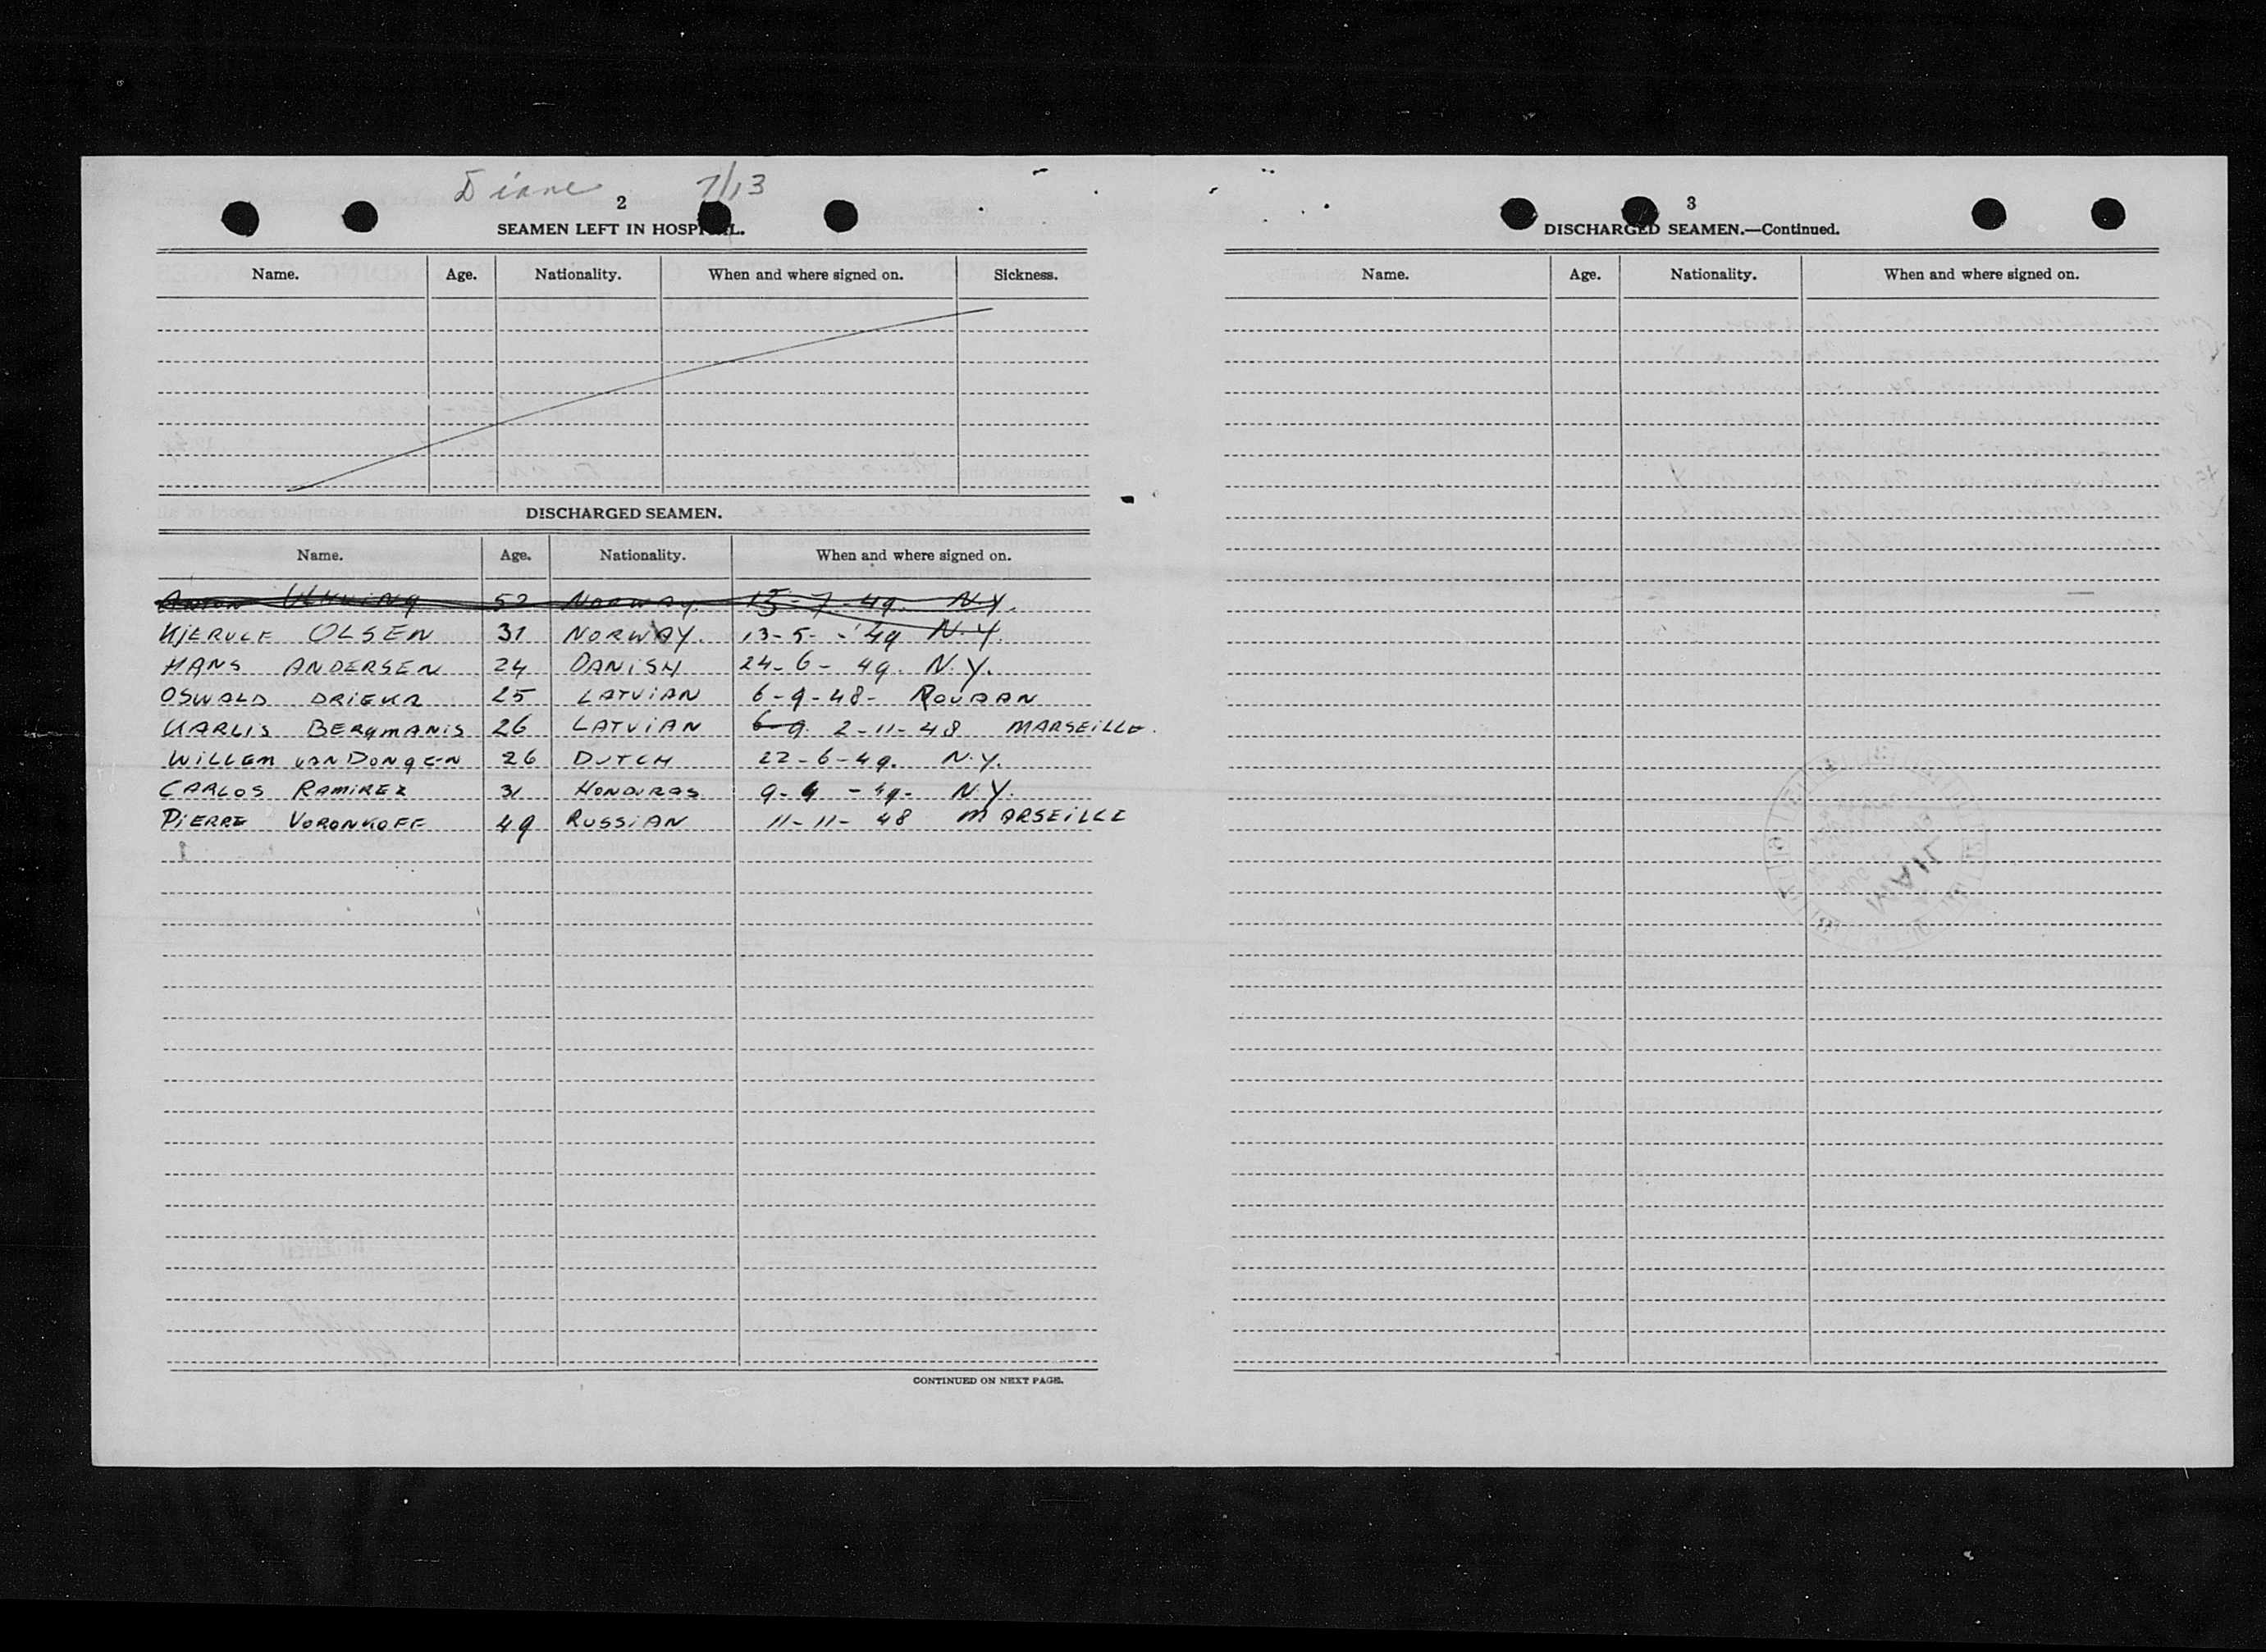 Diane 7/13
2
SEAMEN LEFT IN HOSPITAL.
Name. Age. Nationality. When and where signed on. Sickness.
DISCHARGED SEAMEN.
Name. Age. Nationality. When and where signed on.
ANTON 52 NORWAY. 15-7-49. N.Y.
KJERULF OLSEN 31 NORWAY. 13-5-'49 N.Y.
HANS ANDERSEN 24 DANISH 24-6-49. N.Y.
OSWALD 25 LATVIAN 6-9-48-
KARLIS BERGMANIS 26 LATVIAN 6-9 2-11-48 MARSEILLE.
WILLEM van DONGEN 26 DUTCH 22-6-49. N.Y.
CARLOS RAMIREZ 31 HONDURAS 9-4-49- N.Y.
PIERRE VORONKOFF 49 RUSSIAN 11-11-48 MARSEILLE
CONTINUED ON NEXT PAGE.
3
DISCHARGED SEAMEN.—Continued.
Name. Age. Nationality. When and where signed on.